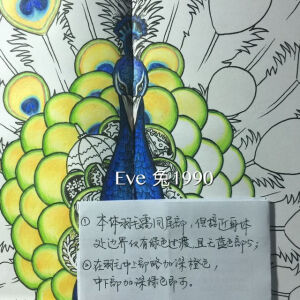 Eve 兔1990
① 本体羽毛需同尾部，但接近身体
处边界仅有绿色过渡，且无蓝色部分；
②在羽毛中上部略加深橙色，
中下部加深绿色即可。